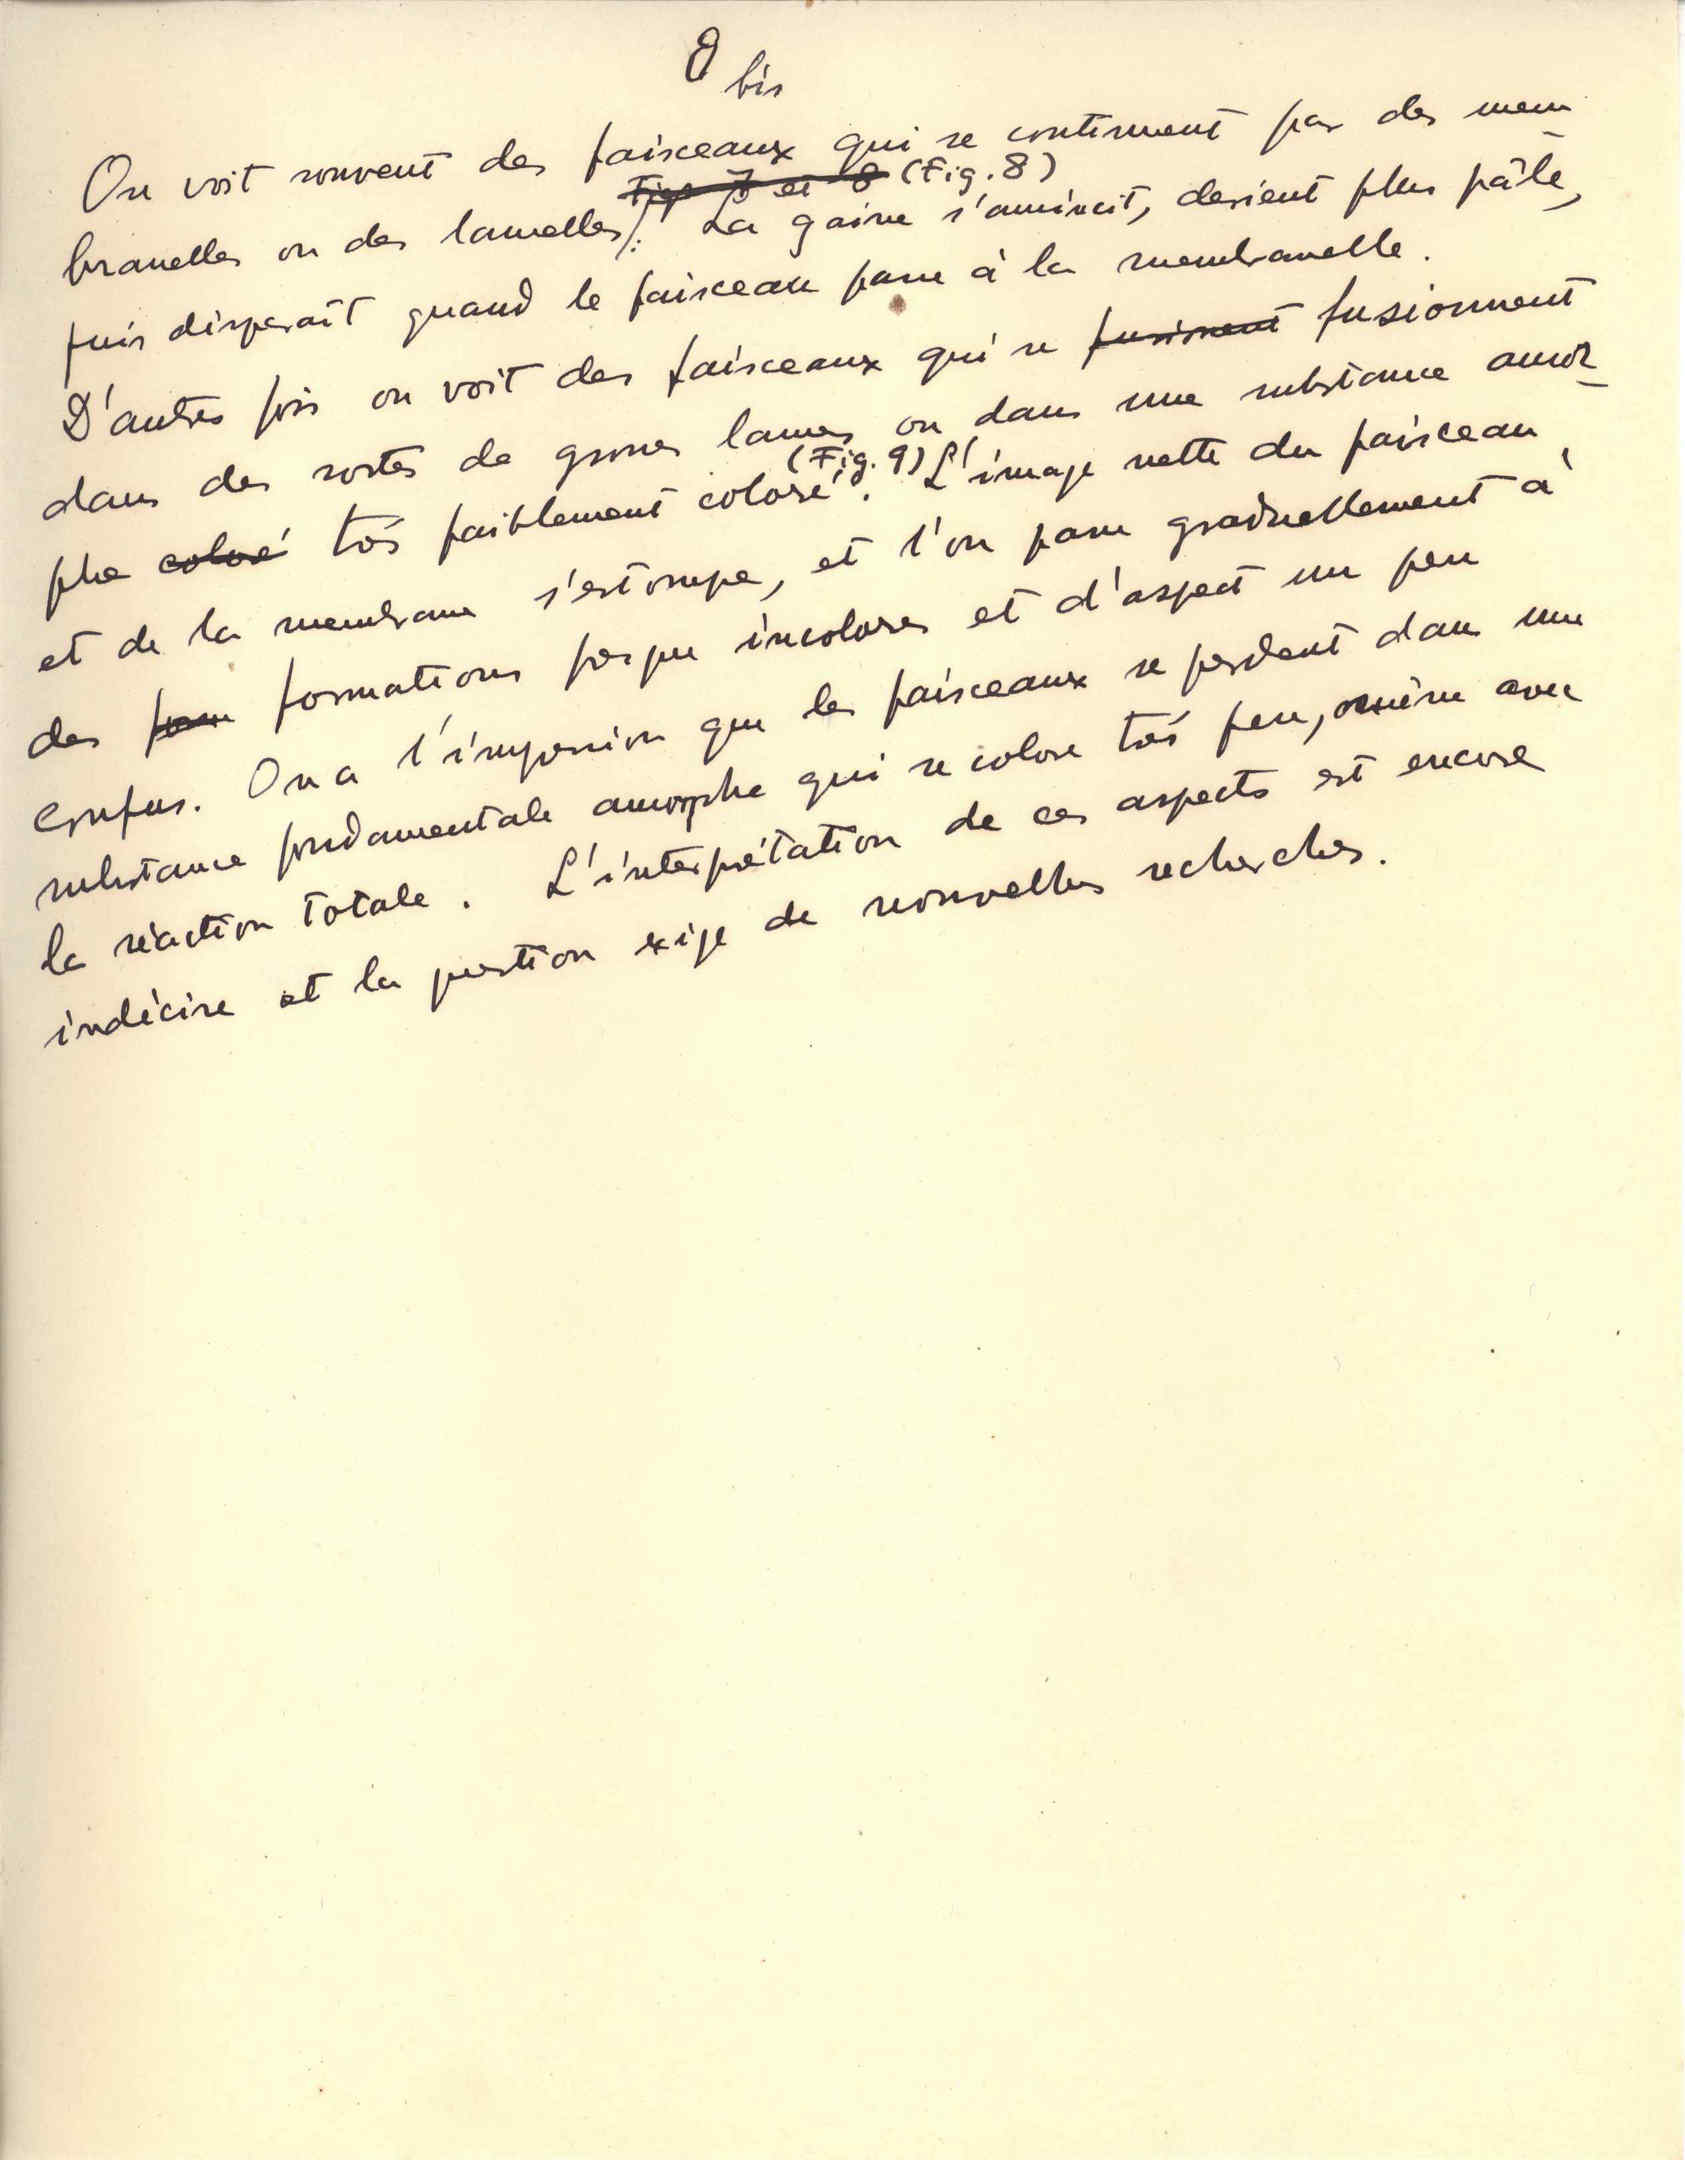 8 bis
On voit souvent des faisceaux qui se continuent par des mem-
branelles ou des lamelles. Fig. 7 et 8 (Fig. 8) La gaine s'amincit, devient plus pâle,
puis disparaît quand le faisceau passe à la membranelle.
D'autres fois on voit des faisceaux qui se fusionent fusionnent
dans des sortes de grosses lames ou dans une substance amor-
phe coloré très faiblement coloré (Fig. 9). L'image nette du faisceau
et de la membrane s'estompe, et l'on passe graduellement à
des form formations presque incolores et d'aspect un peu
confus. On a l'impression que les faisceaux se perdent dans une
substance fondamentale amorphe qui se colore très peu, même avec
la réaction totale. L'interprétation de ces aspects est encore
indécise et la question exige de nouvelles recherches.